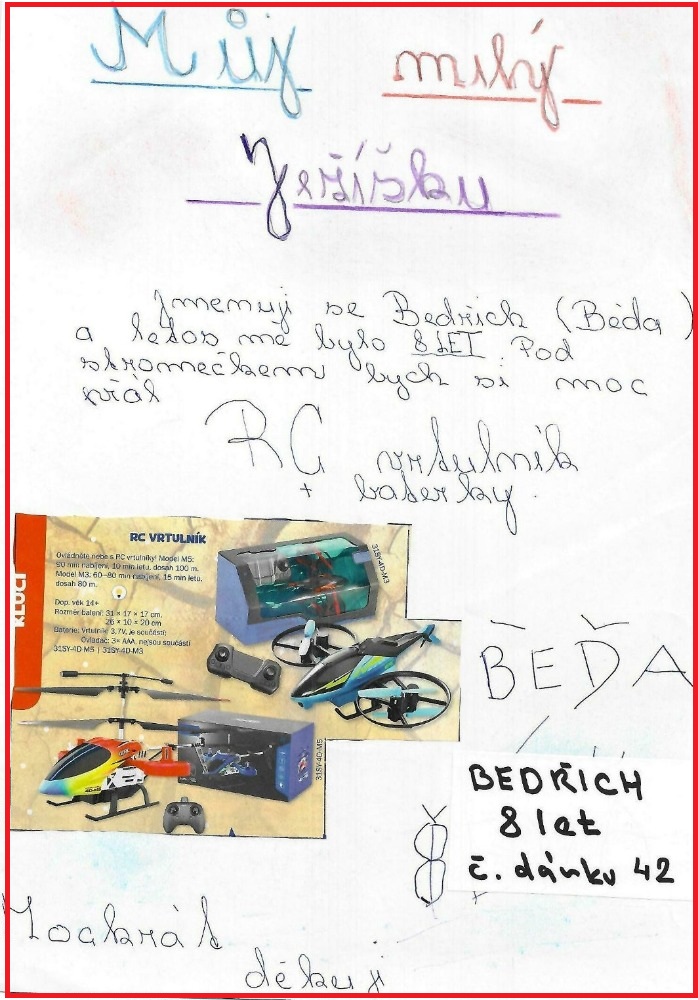 Můj milý
Ježíšku
Jmenuji se Bedřich (Béda)
a letos mě bylo 8 LET. Pod
stromečkem bych si moc
přál
RC vrtulník
+ baterky.
RC VRTULNÍK
Ovládněte nebe s RC vrtulníky! Model M5:
90 min nabíjení, 10 min letu, dosah 100 m.
Model M3: 60–80 min nabíjení, 15 min letu,
dosah 80 m.
Dop. věk 14+
Rozměr balení: 31 × 17 × 17 cm,
26 × 10 × 20 cm
Baterie: Vrtulník: 3.7V, je součástí;
Ovladač: 3× AAA, nejsou součástí
31SY-4D-M5 | 31SY-4D-M3
KLUCI
31SY-4D-M3
31SY-4D-M5
BEĎA
BEDŘICH
8 let
č. dárku 42
8
Mockrát
děkuji